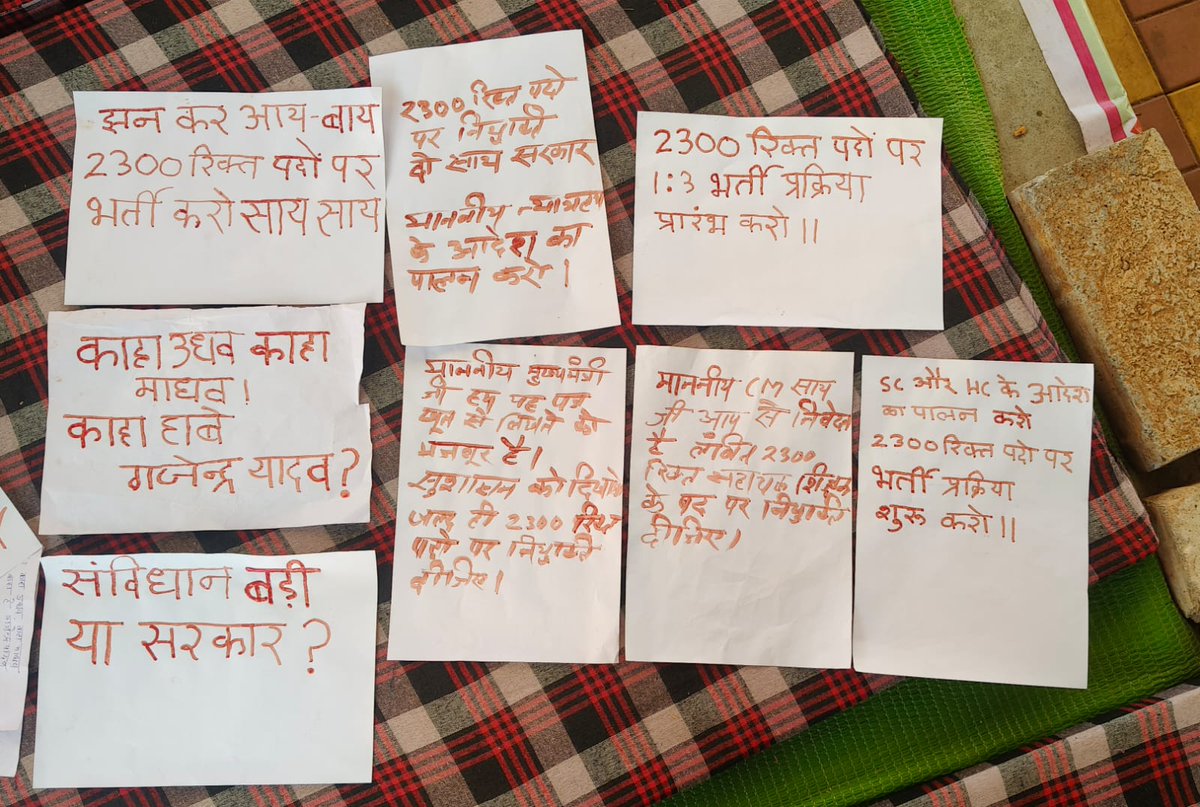 झन कर आय-बाय
2300 रिक्त पदों पर
भर्ती करो साय साय
2300 रिक्त पदो
पर नियुक्ति
दो साय सरकार
माननीय
के आदेश का
पालन करो।
2300 रिक्त पदों पर
1:3 भर्ती प्रक्रिया
प्रारंभ करो॥
काहा उधव काहा
माधव!
काहा हाबे
गजेन्द्र यादव?
माननीय मुख्यमंत्री
जी हम यह पत्र
खून से लिखने को
मजबूर है।
सुशासन को
जल्द ही 2300 रिक्त
पदो पर नियुक्ति
दीजिए।
माननीय CM साय
जी आप से निवेदन
है लंबित 2300
रिक्त सहायक शिक्षक
के पद पर नियुक्ति
दीजिए।
SC और HC के आदेश
का पालन करो
2300 रिक्त पदो पर
भर्ती प्रक्रिया
शुरू करो॥
संविधान बड़ी
या सरकार?